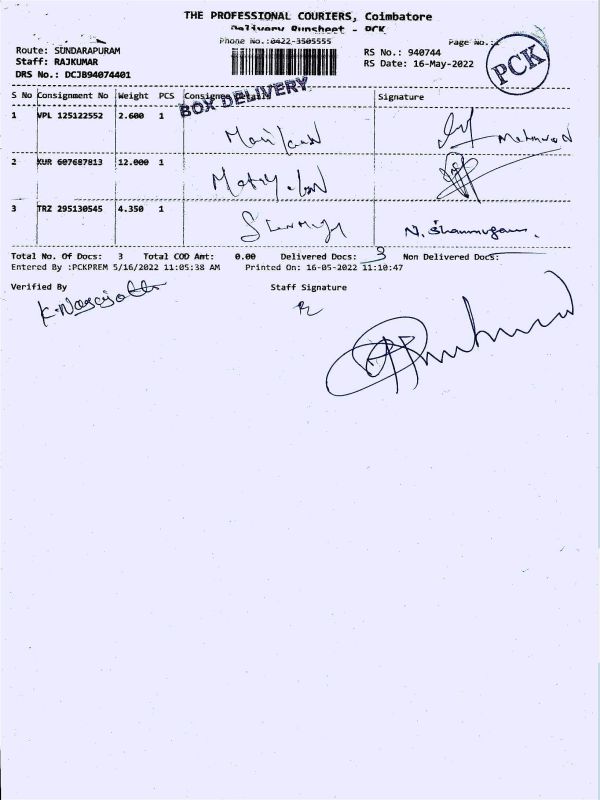 THE PROFESSIONAL COURIERS, Coimbatore
Delivery Runsheet - PCK
Phone No.:0422-3505555
Page No.:
PCK
Route: SUNDARAPURAM
RS No.: 940744
Staff: RAJKUMAR
RS Date: 16-May-2022
DRS No.: DCJB94074401
BOX DELIVERY
S No Consignment No Weight PCS Consignee Signature
1 VPL 125122552 2.600 1
2 KUR 607687813 12.000 1
3 TRZ 295130545 4.350 1 N. Shanmugam.
Total No. Of Docs: 3 Total COD Amt: 0.00 Delivered Docs: 3 Non Delivered Docs:
Entered By :PCKPREM 5/16/2022 11:05:38 AM Printed On: 16-05-2022 11:10:47
Verified By Staff Signature